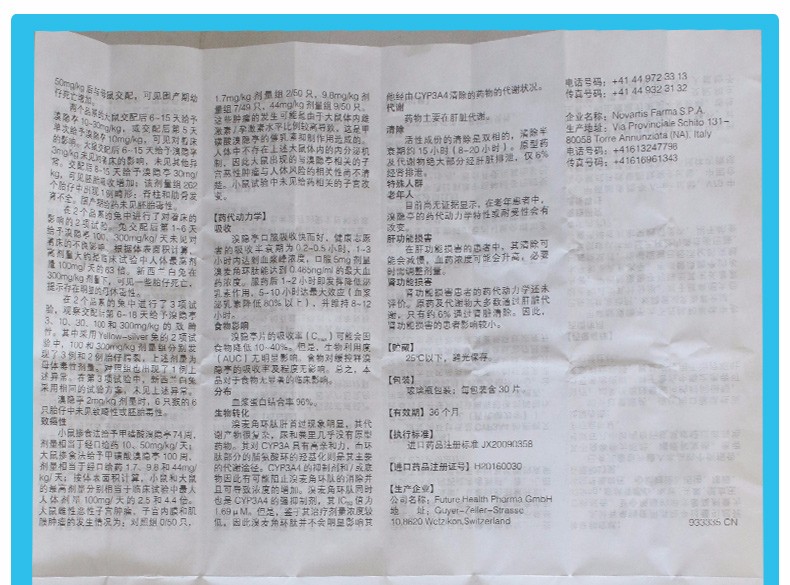 50mg/kg后与雄鼠交配，可见围产期幼
仔死亡增加。
两个品系的大鼠交配后6-15天给予
溴隐亭10-30mg/kg，或交配后第5天
单次给予溴隐亭10mg/kg，可见对着床
的影响。大鼠交配后6-15天给予溴隐亭
3mg/kg未见对着床的影响，未见其他异
常。交配后6-15天给予溴隐亭30mg/
kg，可见胚胎吸收增加；该剂量组262
个胎仔中出现1例畸形：脊柱和肋骨发
育不全。围产期给药未见胚胎毒性。
在2个品系的兔中进行了对着床的
影响的2项试验。兔交配后第1-6天
给予溴隐亭100、300mg/kg/天未见对
着床的不良影响。根据体表面积计算，
高剂量大约是临床试验中人体最高剂
量100mg/天的63倍。新西兰白兔在
300mg/kg剂量下，可见一些胎仔死亡，
提示存在明显的母体毒性。
在2个品系的兔中进行了3项试
验，观察交配后第6-18天给予溴隐亭
3、10、30、100和300mg/kg的致畸
性。其中采用Yellow-silver兔的2项试
验中，100和300mg/kg剂量组分别发
现了3例和2例胎仔腭裂，上述剂量为
母体毒性剂量。对照组也出现了1例上
述异常。在第3项试验中，新西兰白兔
采用相同的试验方案，未见上述异常。
溴隐亭2mg/kg剂量时，6只猴的6
只胎仔中未见致畸性或胚胎毒性。
致癌性
小鼠掺食法给予甲磺酸溴隐亭74周，
剂量相当于经口给药10、50mg/kg/天；
大鼠掺食法给予甲磺酸溴隐亭100周，
剂量相当于经口给药1.7、9.8和44mg/
kg/天；按体表面积计算，小鼠和大鼠
的最高剂量分别相当于临床试验中最大
人体剂量100mg/天的2.5和4.4倍。
大鼠雌性恶性子宫肿瘤、子宫内膜和肌
层肿瘤的发生情况为：对照组0/50只，
1.7mg/kg剂量组2/50只，9.8mg/kg剂
量组7/49只，44mg/kg剂量组9/50只。
这些肿瘤的发生可能是由于大鼠体内雌
激素/孕激素水平比例较高导致，这是甲
磺酸溴隐亭的催乳素抑制作用造成的。
人体中不存在上述大鼠体内的内分泌机
制，因此大鼠出现的与溴隐亭相关的子
宫恶性肿瘤与人体风险的相关性尚不清
楚。小鼠试验中未见给药相关的子宫改
变。
【药代动力学】
吸收
溴隐亭口服吸收快而好，健康志愿
者的吸收半衰期为0.2-0.5小时，1-3
小时内达到血浆峰浓度，口服5mg剂量
溴麦角环肽能达到0.465ng/ml的最大血
药浓度。服药后1-2小时即发挥降低泌
乳素作用，5-10小时达最大效应（血浆
泌乳素降低80%以上），并维持8-12
小时。
食物影响
溴隐亭片的吸收率（Cmax）可能会因
食物降低10-40%。但是，生物利用度
（AUC）无明显影响。食物对缓控释溴
隐亭的吸收率及程度无影响。总之，本
品对于食物无显著的临床影响。
分布
血浆蛋白结合率96%。
生物转化
溴麦角环肽肝首过现象明显，其代
谢产物很复杂，尿和粪里几乎没有原型
药物。其对CYP3A具有高亲和力，而环
肽部分的脯氨酸环的羟基化则是其主要
的代谢途径。CYP3A4的抑制剂和/或底
物因此有可能阻止溴麦角环肽的消除并
且可导致浓度的增加。溴麦角环肽同时
也是CYP3A4的强抑制剂，其IC50值为
1.69μM。但是，鉴于其治疗剂量浓度较
低，因此溴麦角环肽并不会明显影响其
他经由CYP3A4清除的药物的代谢状况。
代谢
药物主要在肝脏代谢。
清除
活性成份的清除是双相的，清除半
衰期约15小时（8-20小时）。原型药
及代谢物绝大部分经肝脏排泄，仅6%
经肾排泄。
特殊人群
老年人
目前尚无证据显示，在老年患者中，
溴隐亭的药代动力学特性或耐受性会有
改变。
肝功能损害
在肝功能损害的患者中，其清除可
能会减慢，血药浓度可能会升高；必要
时需调整剂量。
肾功能损害
肾功能损害患者的药代动力学还未
评价。原药及代谢物大多数通过肝脏代
谢，只有约6%通过肾脏清除。因此，
肾功能损害的患者影响较小。
【贮藏】
25℃以下，避光保存。
【包装】
玻璃瓶包装；每包装含30片。
【有效期】36个月
【执行标准】
进口药品注册标准 JX20090358
【进口药品注册证号】H20160030
【生产企业】
公司名称：Future Health Pharma GmbH
地　　址：Guyer-Zeller-Strasse
10,8620 Wetzikon,Switzerland
电话号码：+41 44 972 33 13
传真号码：+41 44 932 31 32
企业名称：Novartis Farma S.P.A.
生产地址：Via Provinciale Schito 131-
80058 Torre Annunziata (NA), Italy
电话号码：+41613247798
传真号码：+41616961343
933335 CN